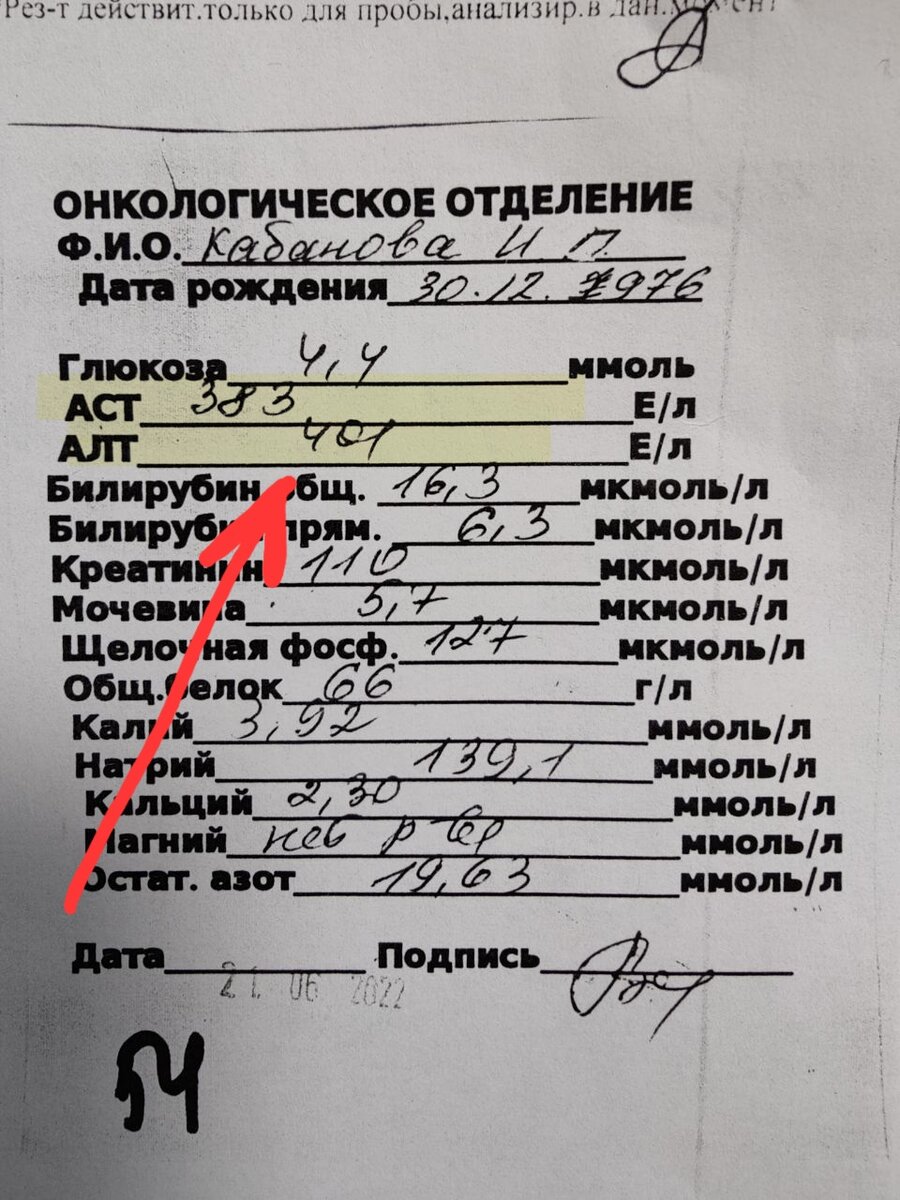 Рез-т действит.только для пробы,анализир.в дан.момент
ОНКОЛОГИЧЕСКОЕ ОТДЕЛЕНИЕ
Ф.И.О. Кабанова И. П.
Дата рождения 30.12.1976
Глюкоза 4,4 ммоль
АСТ 383 Е/л
АЛТ 401 Е/л
Билирубин общ. 16,3 мкмоль/л
Билирубин прям. 6,3 мкмоль/л
Креатинин 110 мкмоль/л
Мочевина 5,7 мкмоль/л
Щелочная фосф. 127 мкмоль/л
Общ.белок 66 г/л
Калий 3,92 ммоль/л
Натрий 139,1 ммоль/л
Кальций 2,30 ммоль/л
Магний нет ммоль/л
Остат. азот 19,63 ммоль/л
Дата 21 06 2022 Подпись
54